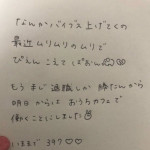 「なんかバイブス上げてくの
最近ムリムリのムリで
ぴえん こえて ぱおん
もう まじ 過疎しか 勝たんから
明日からは おうちカフェで
働くことにしました
いままで 397♡♡